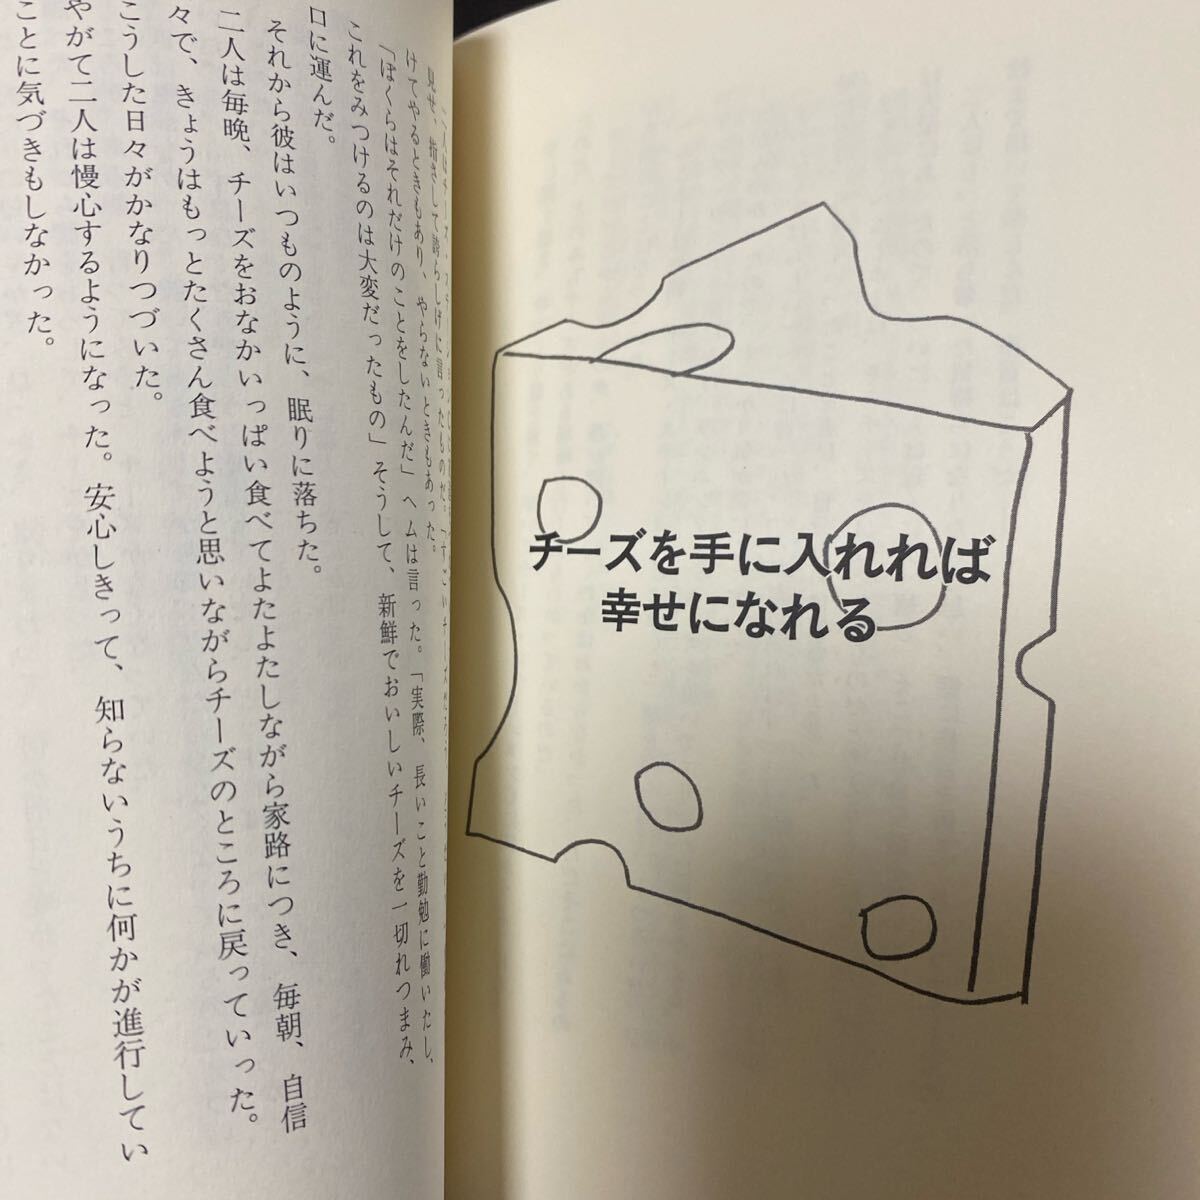 チーズを手に入れれば
幸せになれる
二人はチーズ・ステーションCに
見せ、指さして誇らしげに言ったものだ。「すごいチーズだろう
けてやるときもあり、やらないときもあった。
「ぼくらはそれだけのことをしたんだ」ヘムは言った。「実際、長いこと勤勉に働いたし、
これをみつけるのは大変だったもの」そうして、新鮮でおいしいチーズを一切れつまみ、
口に運んだ。
それから彼はいつものように、眠りに落ちた。
二人は毎晩、チーズをおなかいっぱい食べてよたよたしながら家路につき、毎朝、自信
々で、きょうはもっとたくさん食べようと思いながらチーズのところに戻っていった。
こうした日々がかなりつづいた。
やがて二人は慢心するようになった。安心しきって、知らないうちに何かが進行してい
ことに気づきもしなかった。